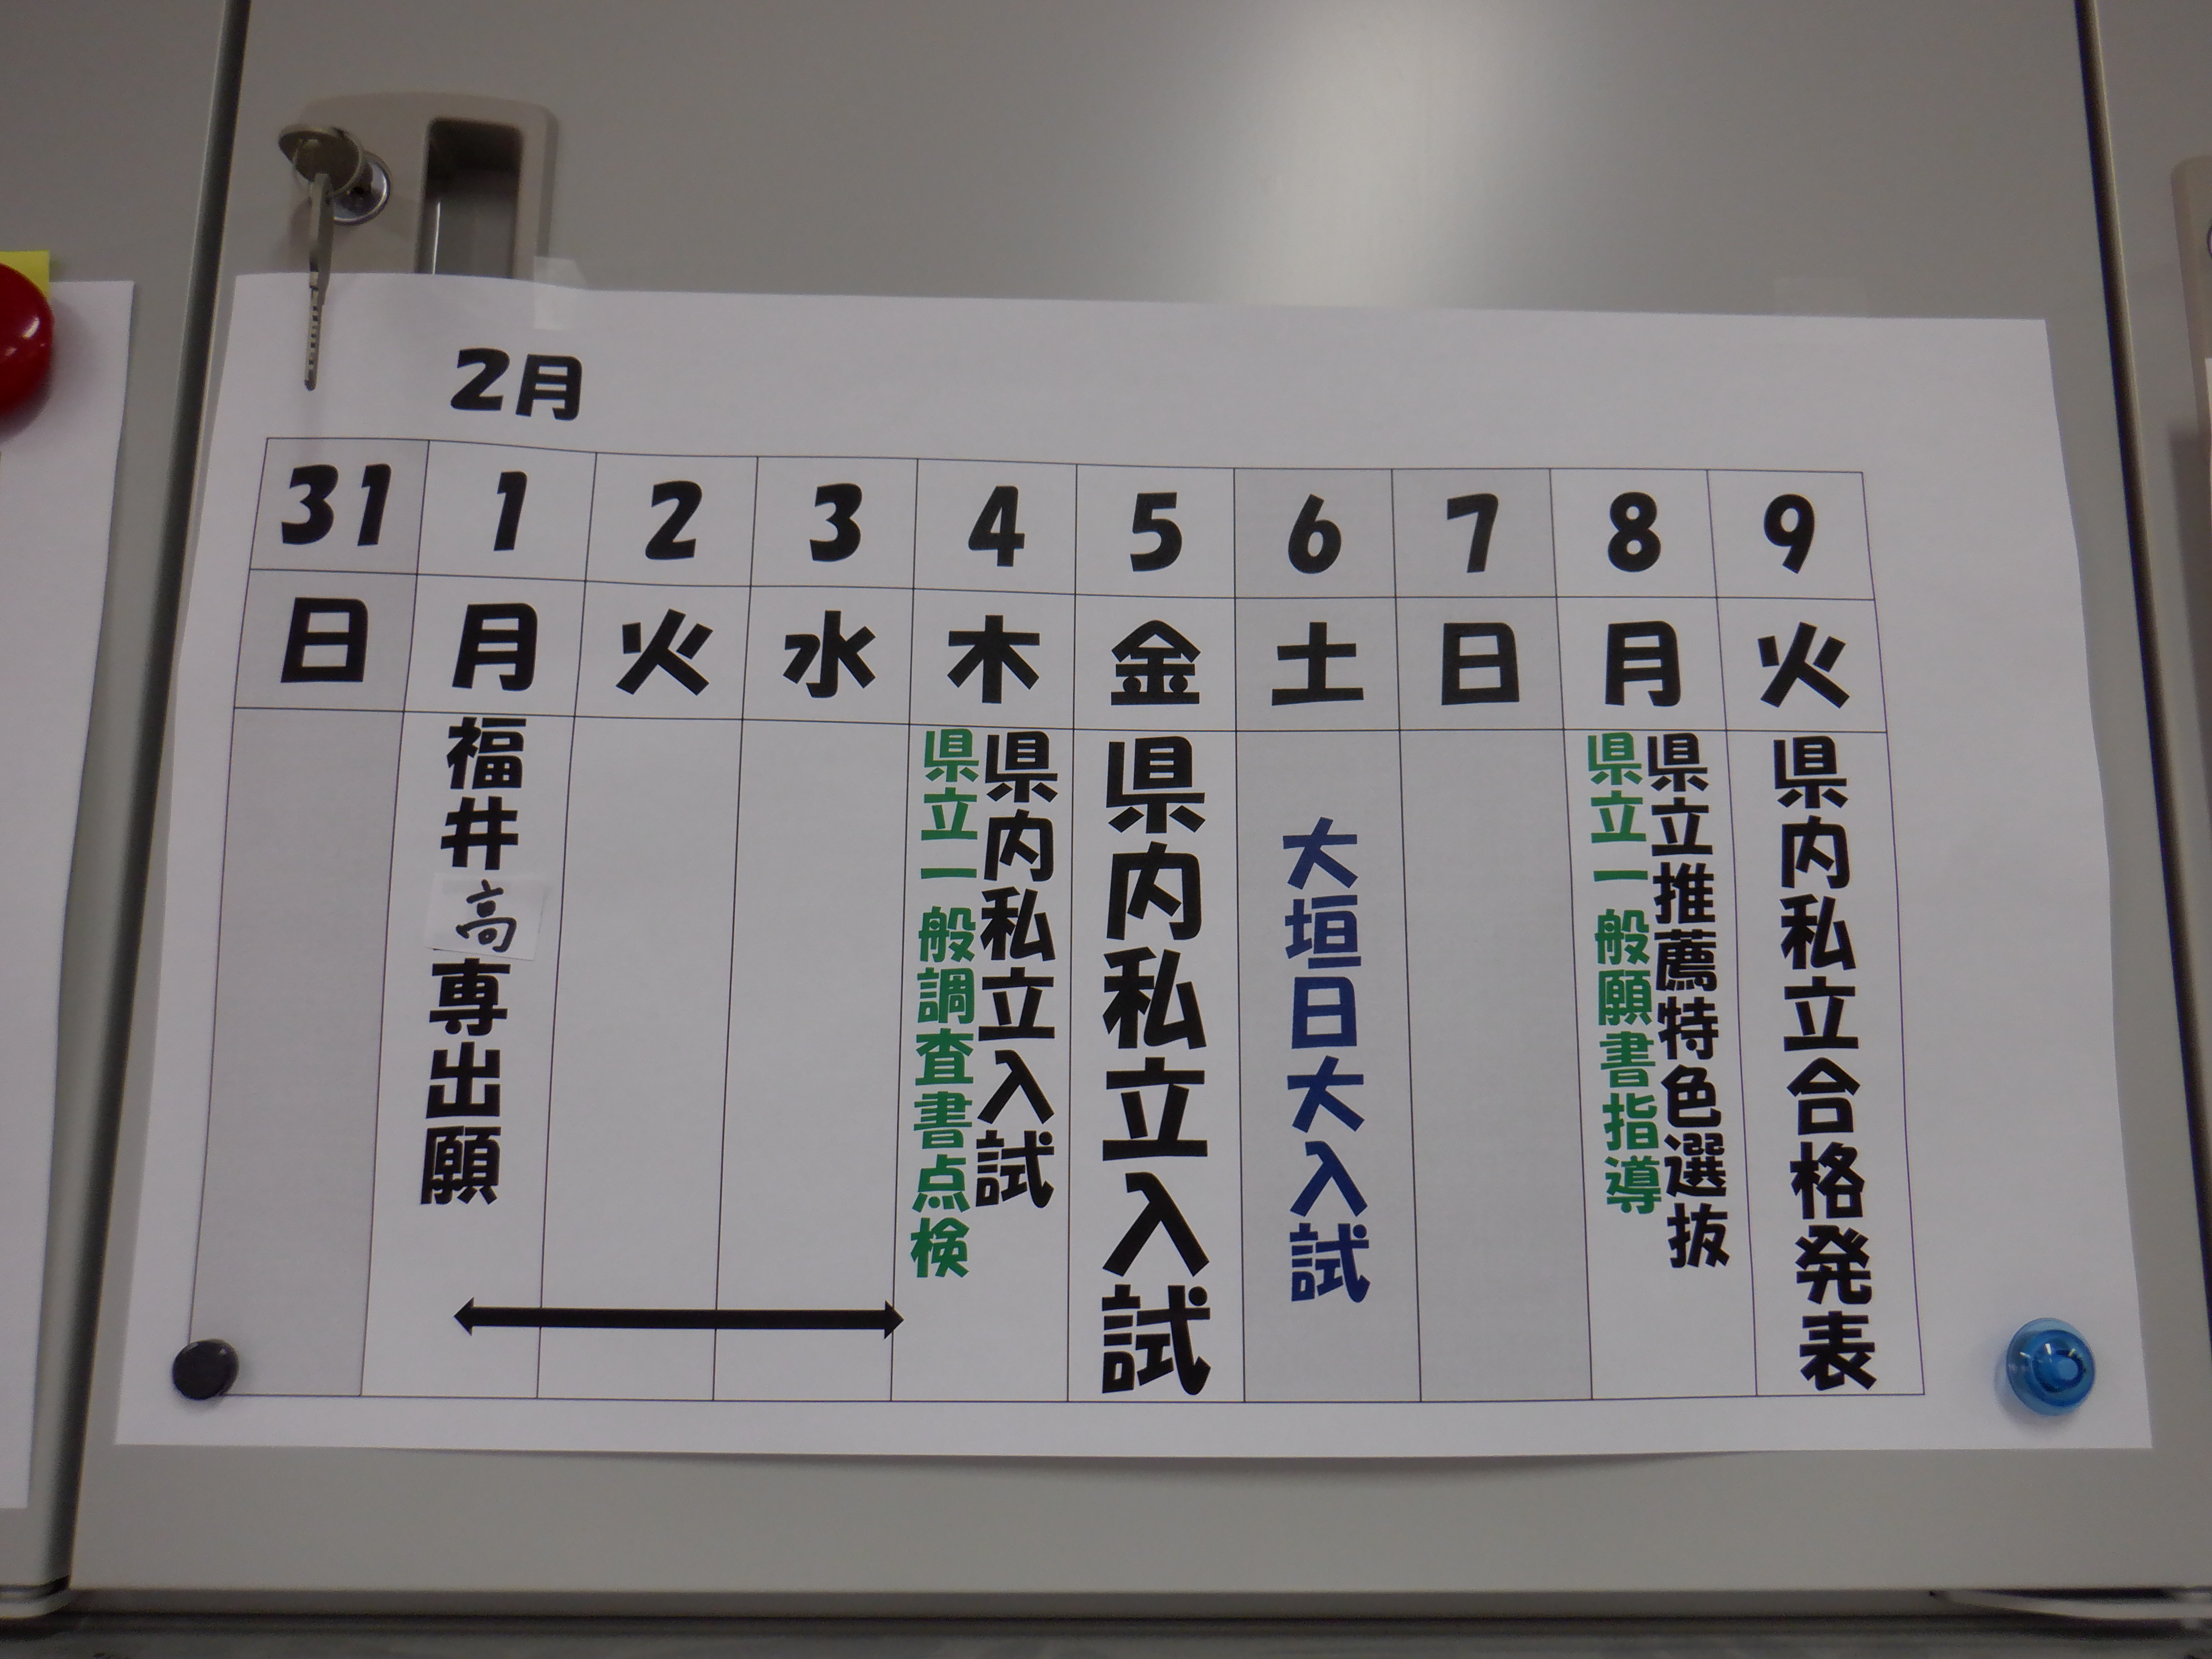 2月
31 1 2 3 4 5 6 7 8 9
日 月 火 水 木 金 土 日 月 火
福井高専出願
県内私立入試
県立一般調査書点検
県内私立入試
大垣日大入試
県立推薦特色選抜
県立一般願書指導
県内私立合格発表